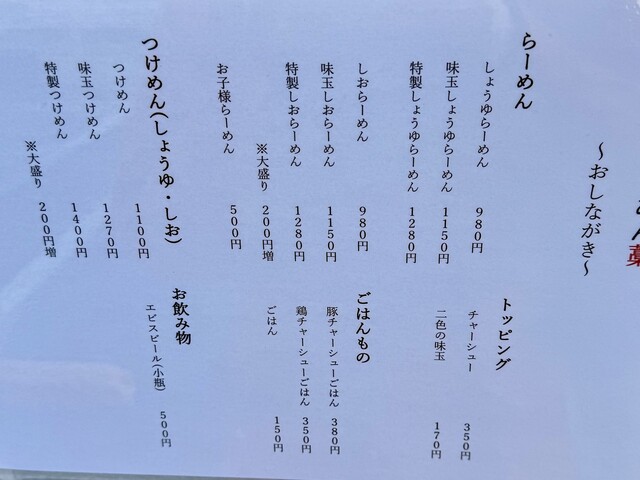 ～おしながき～
らーめん
しょうゆらーめん 980円
味玉しょうゆらーめん 1150円
特製しょうゆらーめん 1280円
しおらーめん 980円
味玉しおらーめん 1150円
特製しおらーめん 1280円
※大盛り 200円増
お子様らーめん 500円
つけめん(しょうゆ・しお)
つけめん 1100円
味玉つけめん 1270円
特製つけめん 1400円
※大盛り 200円増
トッピング
チャーシュー 350円
二色の味玉 170円
ごはんもの
豚チャーシューごはん 380円
鶏チャーシューごはん 350円
ごはん 150円
お飲み物
エビスビール(小瓶) 500円